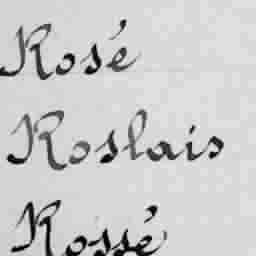 Rosé
Roslais
Rossé